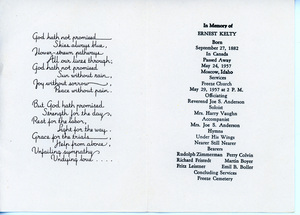 God hath not promised
Skies always blue,
Flower-strewn pathways
All our lives through;
God hath not promised
Sun without rain,
Joy without sorrow,
Peace without pain.
But God hath promised
Strength for the day,
Rest for the labor,
Light for the way,
Grace for the trials,
Help from above,
Unfailing sympathy
Undying love.....
In Memory of
ERNEST KELTY
Born
September 27, 1882
In Canada
Passed Away
May 24, 1957
Moscow, Idaho
Services
Freeze Church
May 29, 1957 at 2 P. M.
Officiating
Reverend Joe S. Anderson
Soloist
Mrs. Harry Vaughn
Accompanist
Mrs. Joe S. Anderson
Hymns
Under His Wings
Nearer Still Nearer
Bearers
Rudolph Zimmerman Perry Colvin
Richard Friendt Martin Boyer
Fritz Leistner Emil B. Boller
Concluding Services
Freeze Cemetery